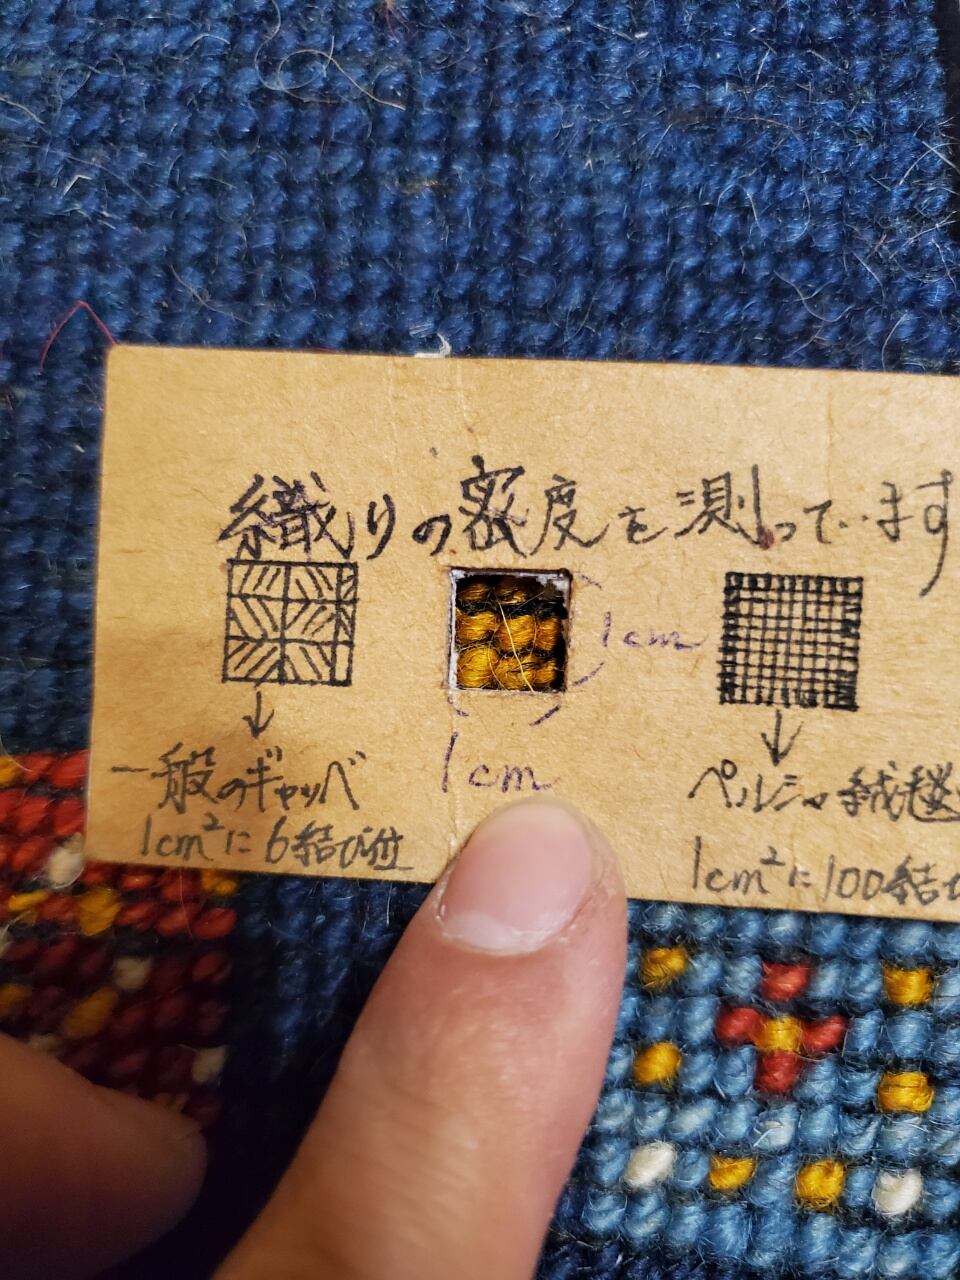 織りの密度を測っています
1cm
1cm
一般のギャッベ
1cm²に6結び位
ペルシャ絨毯
1cm²に100結び